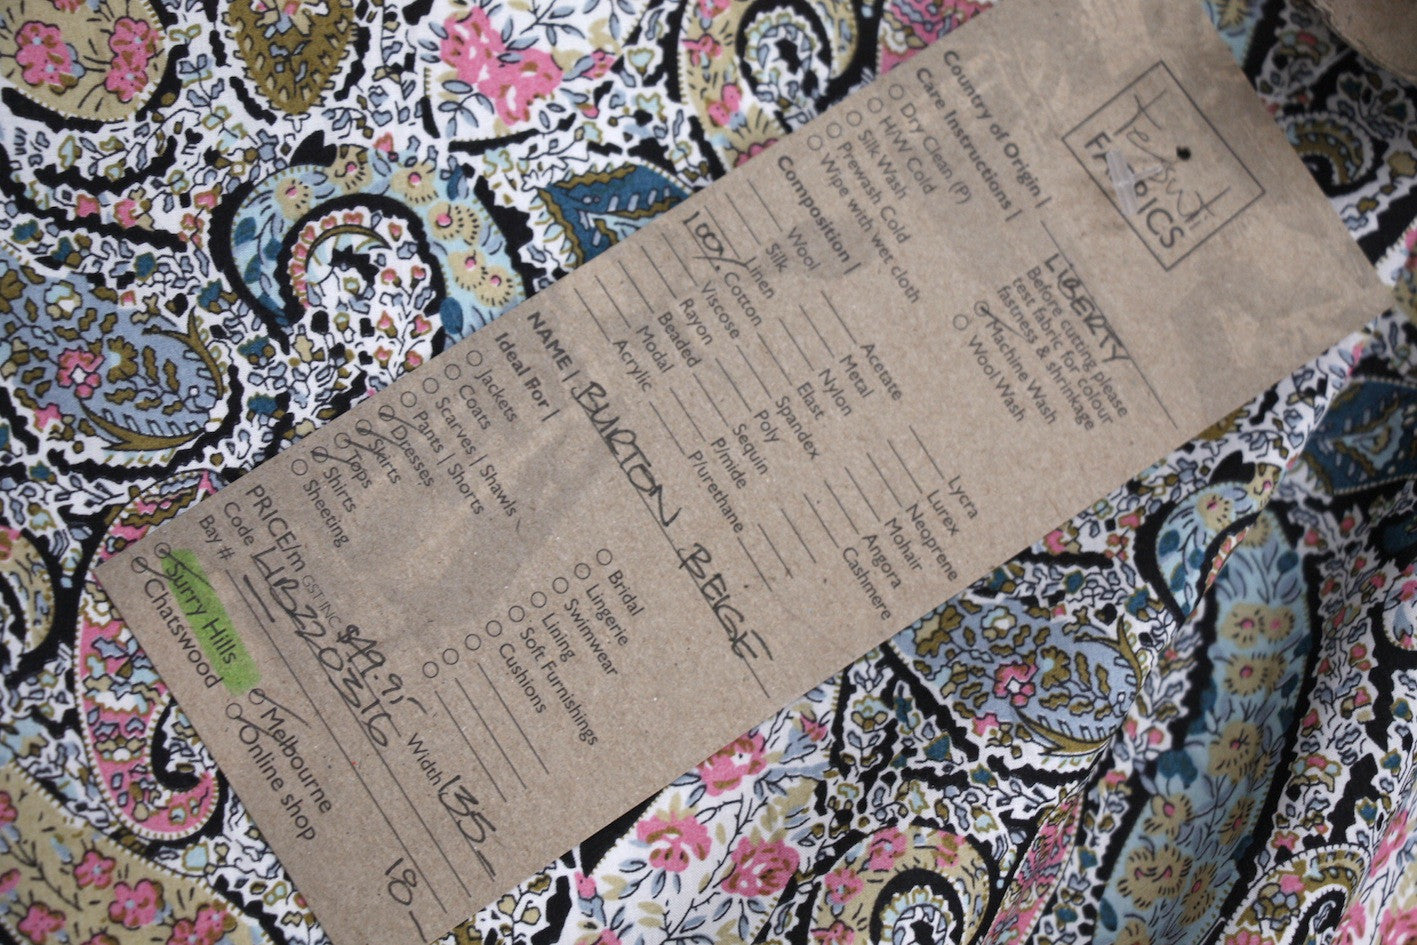 Tessuti
FABRICS
Country of Origin |
LIBERTY
Care Instructions |
Before cutting please
test fabric for colour
fastness & shrinkage
Dry Clean (P)
H/W Cold
Silk Wash
Prewash Cold
Wipe with wet cloth
Machine Wash
Wool Wash
Composition |
Wool
Silk
Linen
100% Cotton
Viscose
Rayon
Beaded
Modal
Acrylic
Acetate
Metal
Nylon
Elast
Spandex
Poly
Sequin
P/mide
P/urethane
Lycra
Lurex
Neoprene
Mohair
Angora
Cashmere
NAME | BURTON BEIGE
Ideal For |
Jackets
Coats
Scarves | Shawls
Pants | Shorts
Dresses
Skirts
Tops
Shirts
Sheeting
Bridal
Lingerie
Swimwear
Lining
Soft Furnishings
Cushions
PRICE/m GST INC $49.95 Width 135
Code LIB220316
Bay # 18
Surry Hills
Chatswood
Melbourne
Online shop